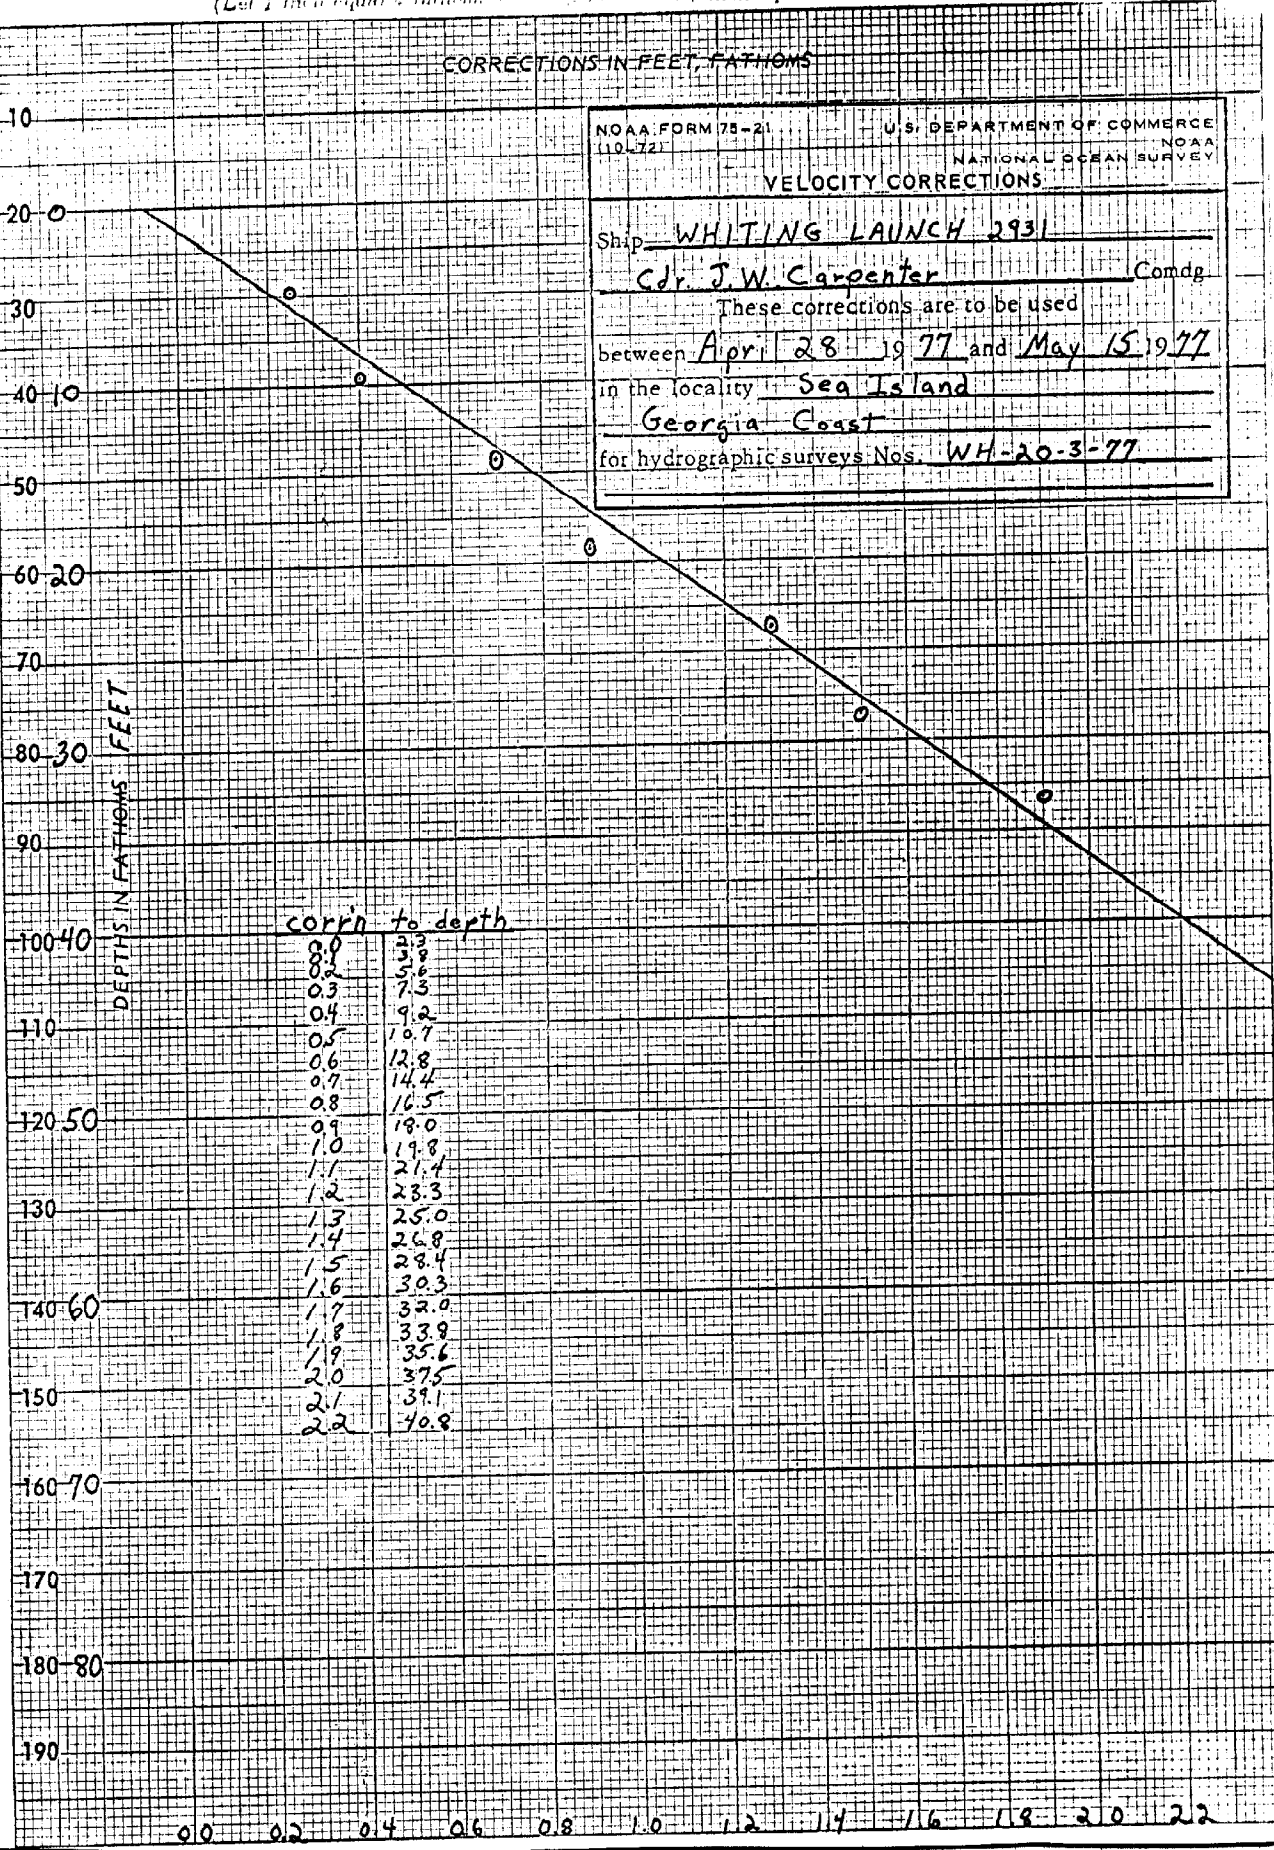 CORRECTIONS IN FEET, FATHOMS
NOAA FORM 75-21
(10-72)
U.S. DEPARTMENT OF COMMERCE
NOAA
NATIONAL OCEAN SURVEY
VELOCITY CORRECTIONS
Ship WHITING LAUNCH 2931
Cdr. J.W. Carpenter Comdg.
These corrections are to be used
between April 28 1977 and May 15 1977
in the locality Sea Island
Georgia Coast
for hydrographic surveys Nos. WH-20-3-77
10
20 0
30
40 10
50
60 20
70
80 30
90
100 40
110
120 50
130
140 60
150
160 70
170
180 80
190
DEPTHS IN FATHOMS FEET
corr'n to depth
0.0 2.3
0.1 3.8
0.2 5.6
0.3 7.3
0.4 9.2
0.5 10.7
0.6 12.8
0.7 14.4
0.8 16.5
0.9 18.0
1.0 19.8
1.1 21.4
1.2 23.3
1.3 25.0
1.4 26.8
1.5 28.4
1.6 30.3
1.7 32.0
1.8 33.8
1.9 35.6
2.0 37.5
2.1 39.1
2.2 40.8
0.0 0.2 0.4 0.6 0.8 1.0 1.2 1.4 1.6 1.8 2.0 2.2